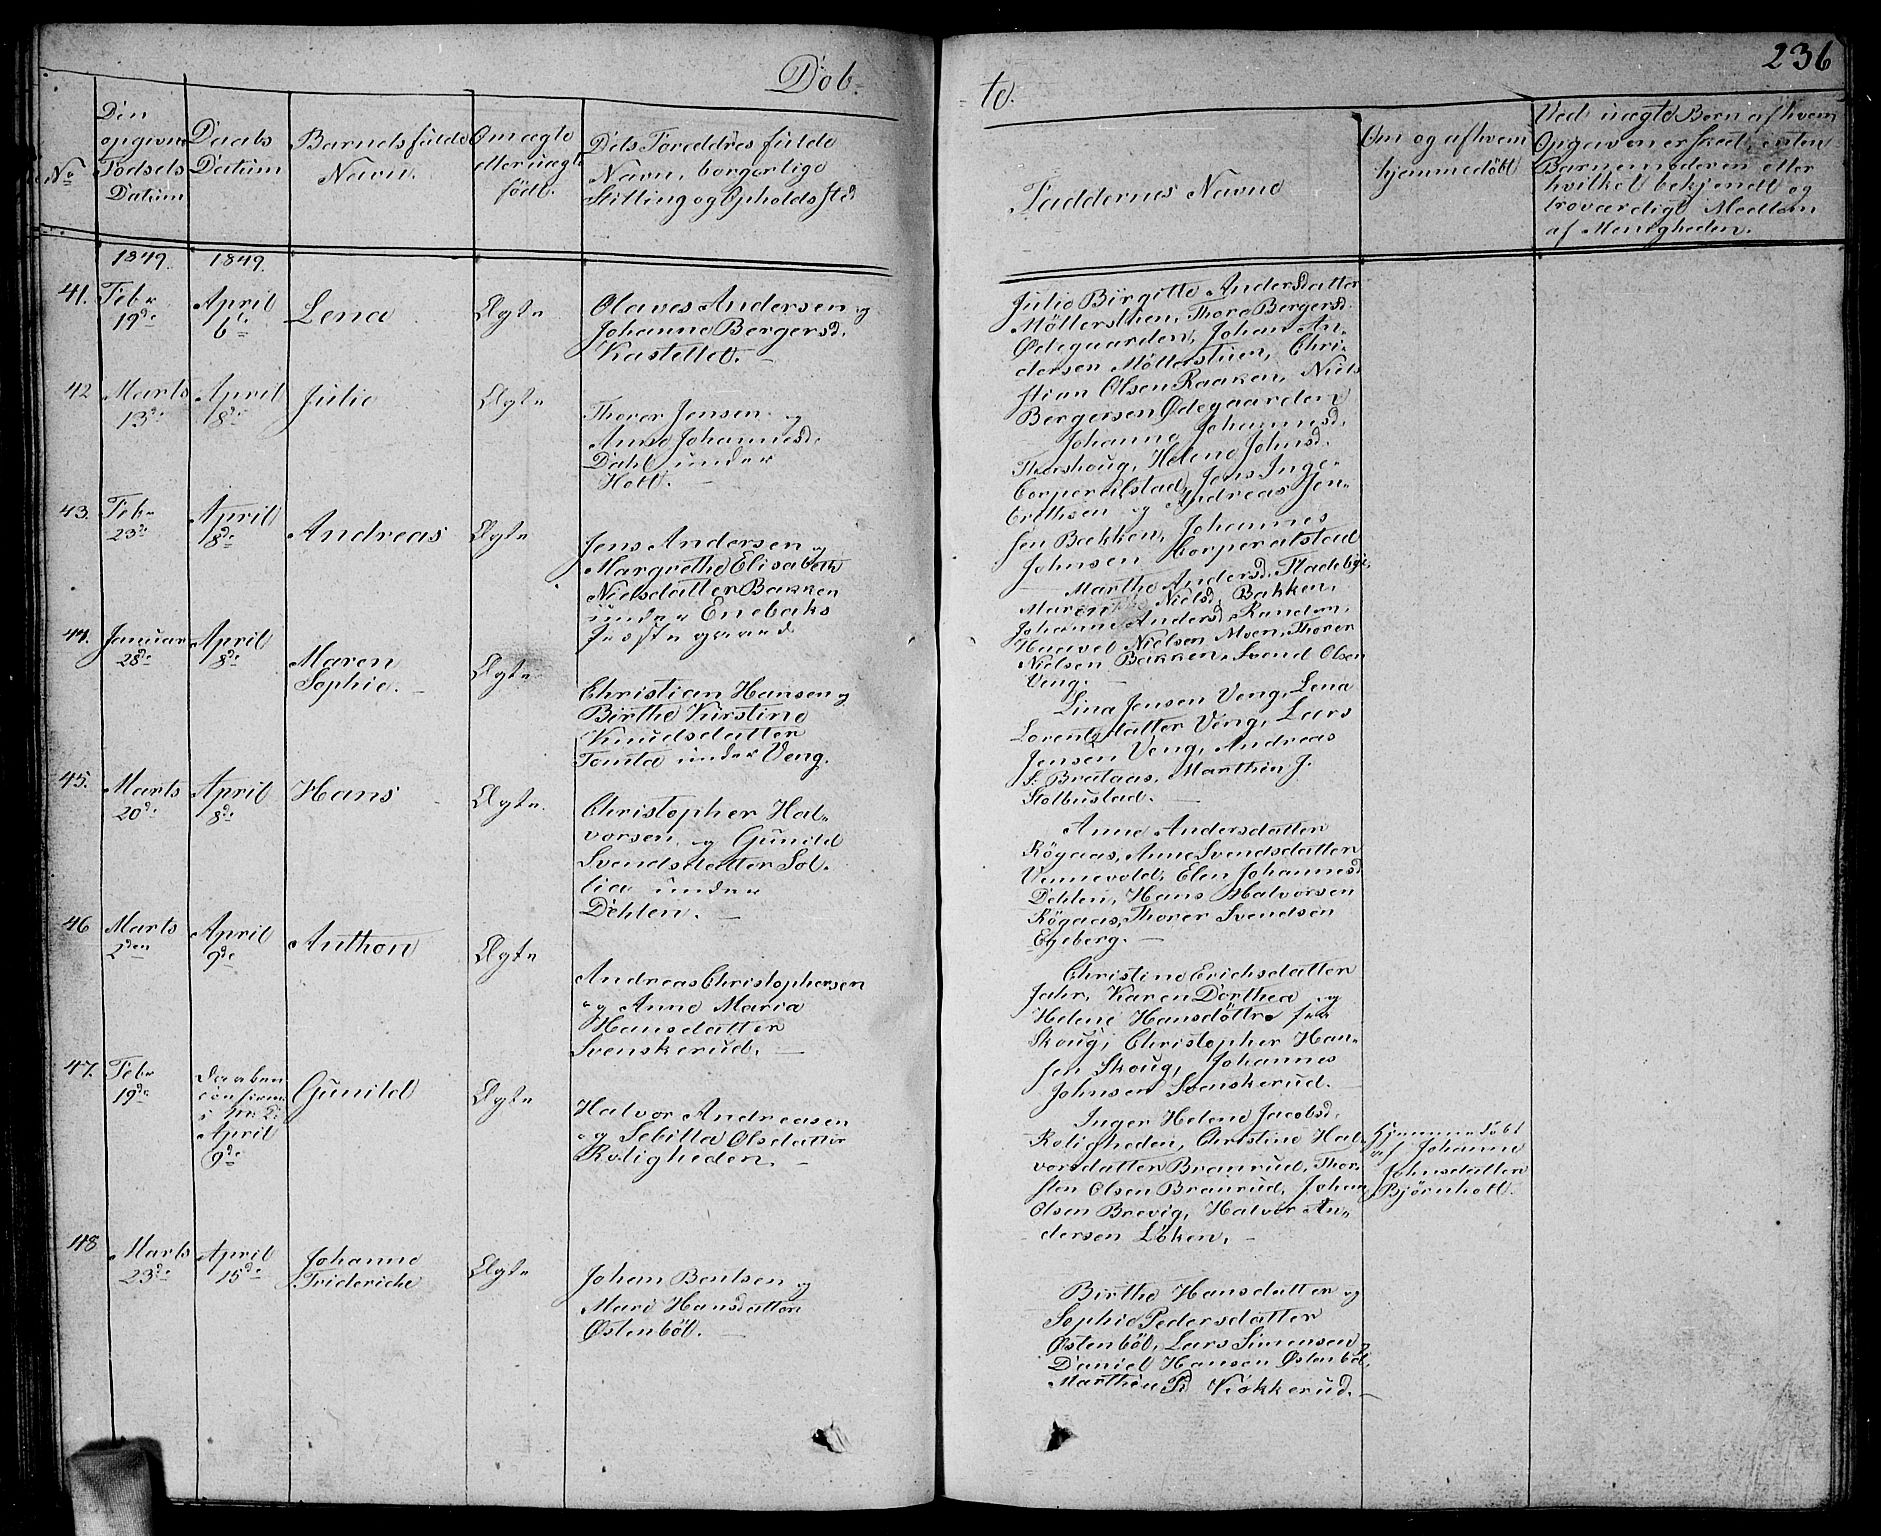 Døb-
-te.
236
No
Den
opgivne
Fødsels
Datum
Daabs
Datum
Barnets fulde
Navn.
Om ægte
eller uægte
født.
Dets Foræddres fulde
Navn, borgerlige
Stilling og Opholds Sted
Faddernes Navne
Om og af hvem
hjemmedøbt
Ved uægte Børn af hvem
Opgaven er skeet, enten
Barnemoderen eller
hvilket bekjendt og
troværdigt Medlem
af Menigheden.
1849. 1849.
41. Febr 19de
April 6te
Lena
Ægte
Olaves Andersen og
Johanne Bergersd.
Kastellet.
Julie Birgitte Andersdatter
Møllerstuen, Thore Bergersd.
Ødegaarden, Johan An-
dersen Møllerstuen, Chri-
stian Olsen Raaken, Niels
Bergersen Ødegaarden
42 Marts 13de
April 8de
Julie
Ægte
Thorer Jensen og
Anne Johannesd.
Dahl under
Holt.
Johanne Johannesd.
Thorshoug, Helene Johnsd.
Corperalstad, Jens Inge-
brethsen og Andreas Jen-
sen Bakken, Johannes
Johnsen Corperalstad
43. Febr 23de
April 8de
Andreas
Ægte
Jens Andersen og
Margrethe Elisabeth
Nielsdatter Bakken
under Enebaks
Præstegaard
Marthe Andersd. Stadsbye,
Maren Nielsd. Bakken,
Johanne Andersd. Randem,
Haavel Nielsen Moen, Thorer
Nielsen Bakken, Svend Olsen
Veng.
44. Januar 28de
April 8de
Maren
Sophie.
Ægte
Christian Hansen og
Birthe Kirstine
Knudsdatter
Tomta under Veng.
Lina Jensen Veng, Lena
Lorentzdatter Veng, Lars
Jensen Veng, Andreas
S. Brataas, Marthin J.
Stolbustad.
45. Marts 20de
April 8de
Hans
Ægte.
Christopher Hal-
vorsen og Gunild
Svendsdatter Sol-
lia under
Dehlen.
Anne Andersdatter
Røgaas, Anne Svendsdatter
Vennevold, Elen Johannesd
Dehlen, Hans Halvorsen
Røgaas, Thorer Svendsen
Egeberg.
46 Marts 2den
April 9de
Anthon
Ægte
Andreas Christophersen
og Anne Maria
Hansdatter
Svenskerud.
Christine Erichsdatter
Jahr, Karen Dorthea og
Helene Hansdøttre fra
Skoug, Christopher Han-
sen Skoug, Johannes
Johnsen Svenskerud.
47. Febr 19de
Daaben
confirm.
April
9de
Gunild
Ægte
Halvor Andreasen
og Sebilla Olsdatter
Roligheden.
Inger Helene Jacobsd.
Roligheden, Christine Hal-
vorsdatter Branrud, Thor-
sten Olsen Branrud, Johan
Olsen Brevig, Halvor An-
dersen Løken,
Hjemmedøbt
af Johanne
Johnsdatter
Bjørnholt.
48 Marts 23de
April 15de
Johanne
Fridericke
Ægte
Johan Bentsen og
Mari Hansdatter
Østenbøl.
Birthe Hansdatter og
Sophie Pedersdatter
Østenbøl, Lars Simensen,
Daniel Hansen Østenbøl,
Marthin Pd Kiøkkerud.